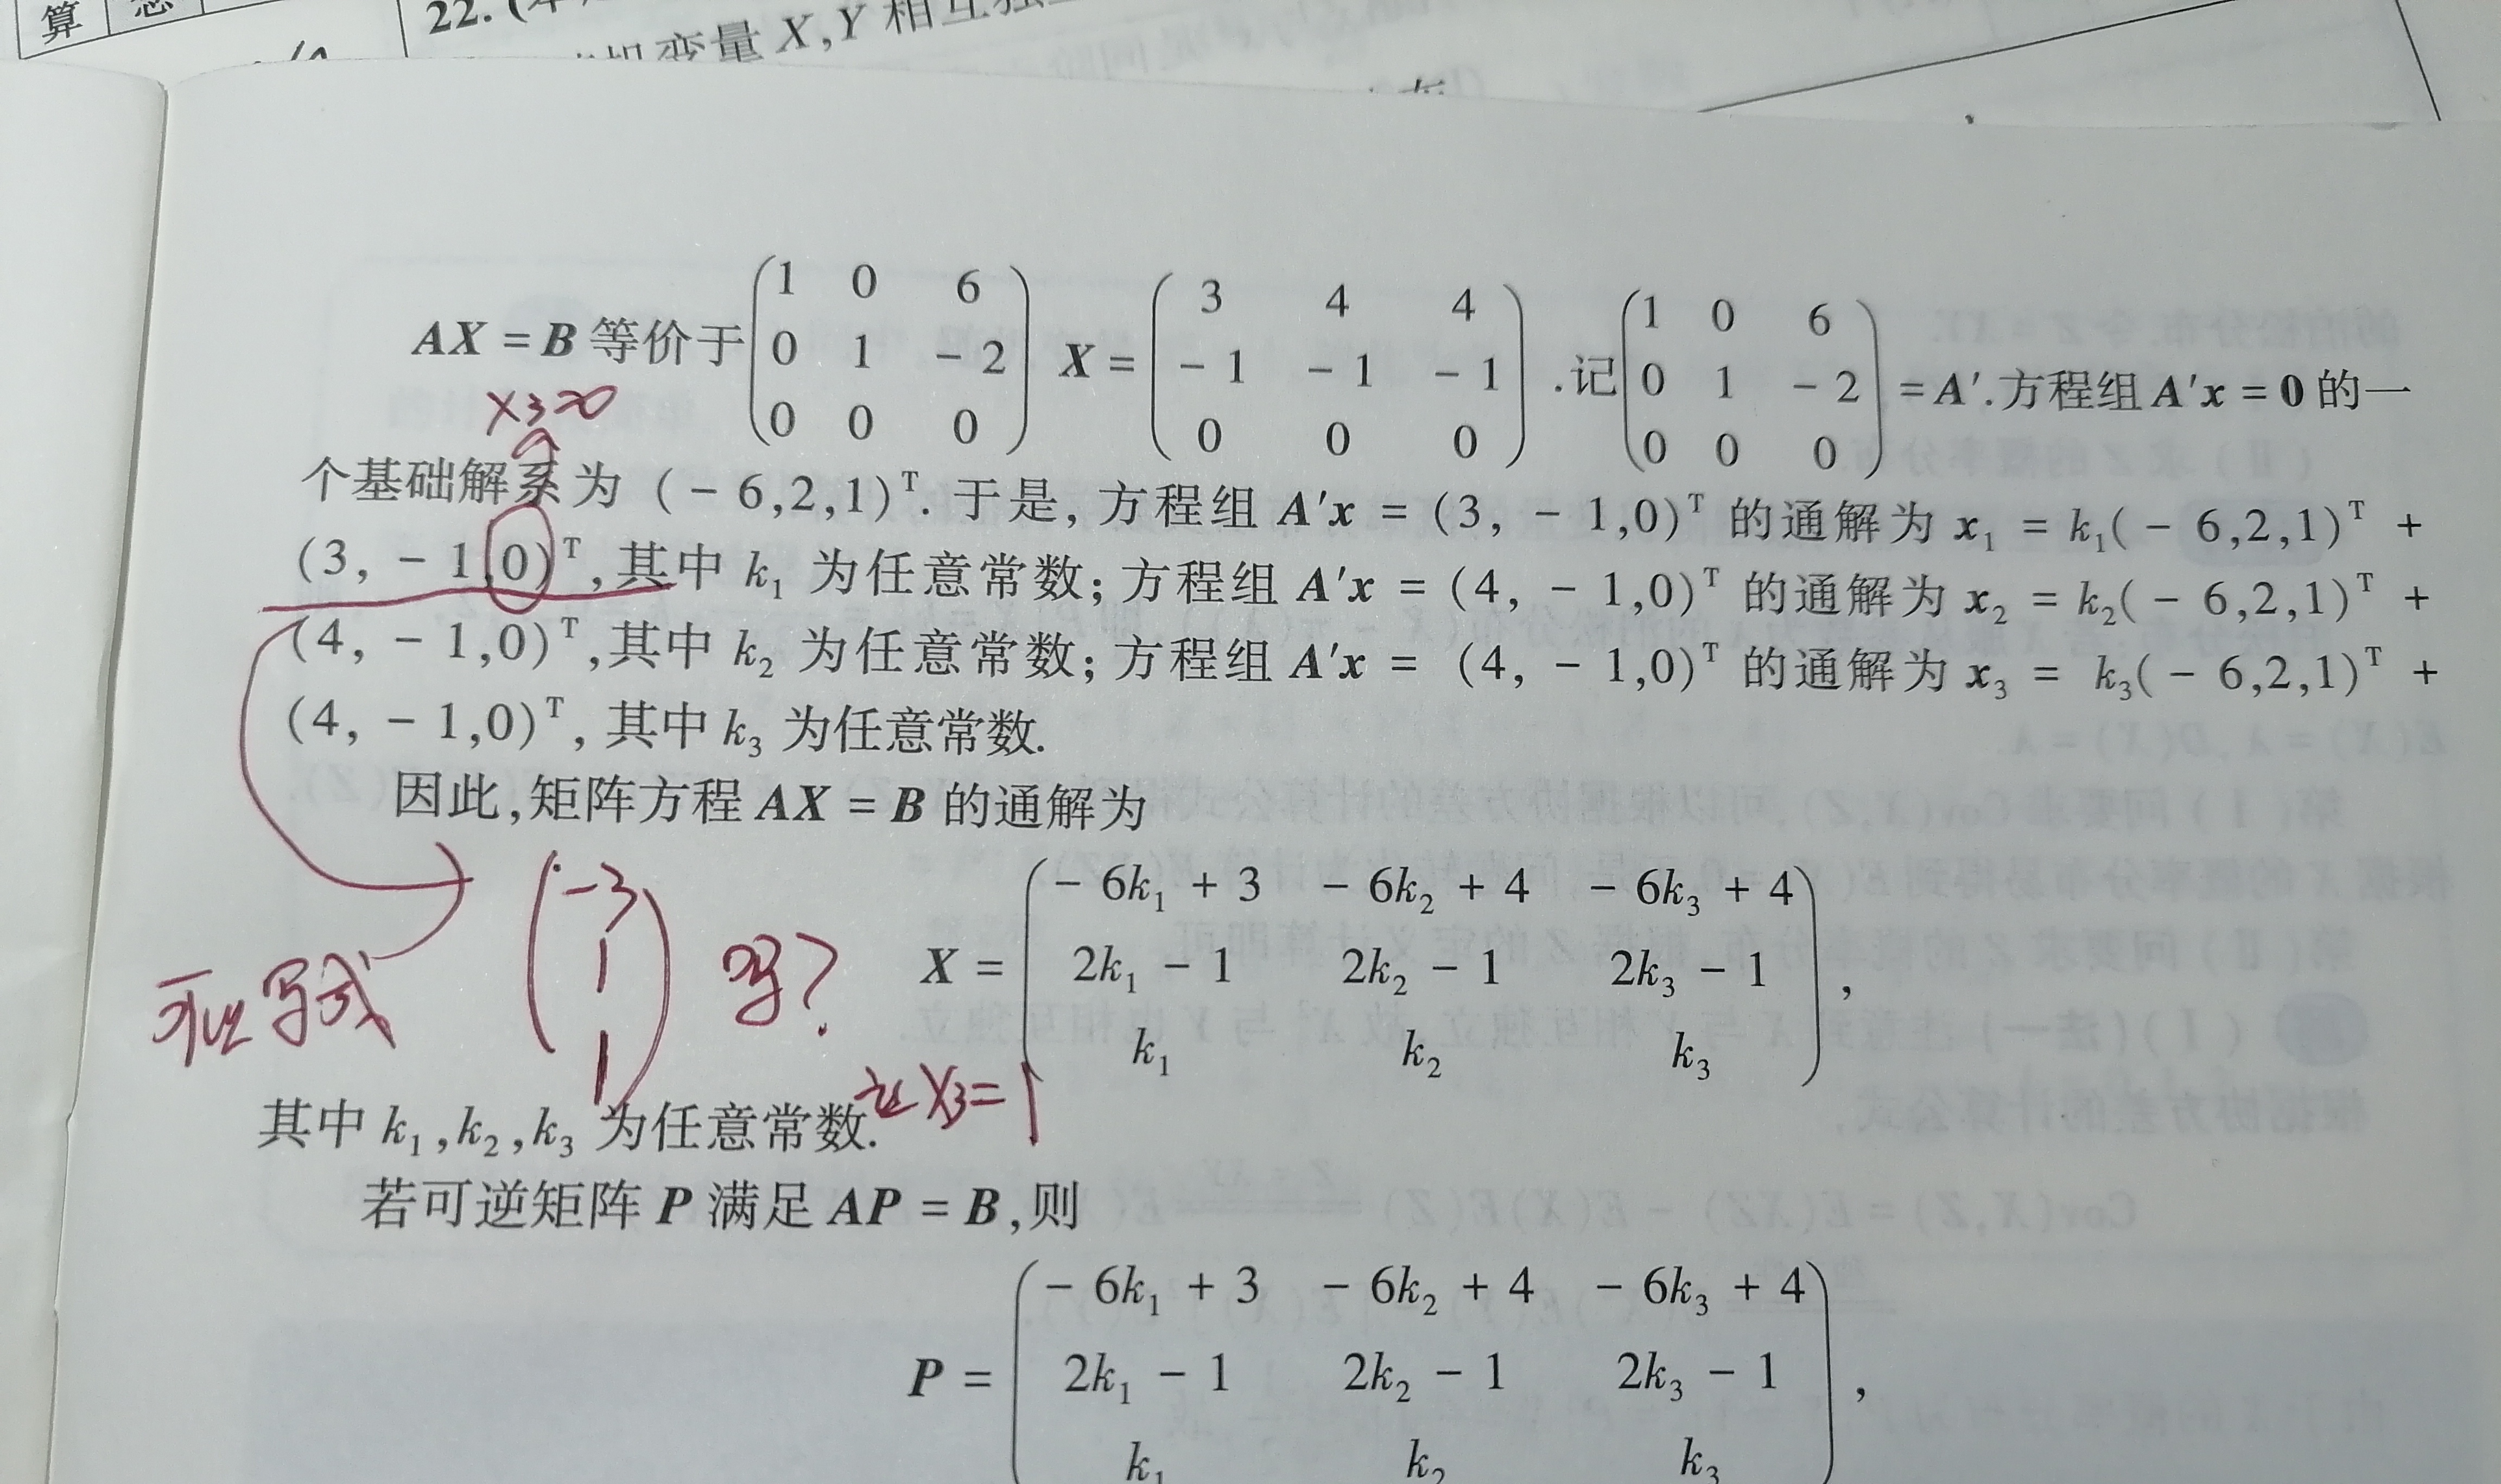 算
22.(本
机变量 X,Y 相互独立
AX = B 等价于 (1 0 6; 0 1 -2; 0 0 0) X = (3 4 4; -1 -1 -1; 0 0 0) .记 (1 0 6; 0 1 -2; 0 0 0) = A'.方程组 A'x = 0 的一
x₃=0
个基础解系为 (-6,2,1)ᵀ.于是,方程组 A'x = (3, -1,0)ᵀ 的通解为 x₁ = k₁(-6,2,1)ᵀ +
(3, -1,0)ᵀ,其中 k₁ 为任意常数;方程组 A'x = (4, -1,0)ᵀ 的通解为 x₂ = k₂(-6,2,1)ᵀ +
(4, -1,0)ᵀ,其中 k₂ 为任意常数;方程组 A'x = (4, -1,0)ᵀ 的通解为 x₃ = k₃(-6,2,1)ᵀ +
(4, -1,0)ᵀ,其中 k₃ 为任意常数.
因此,矩阵方程 AX = B 的通解为
X = (-6k₁ + 3 -6k₂ + 4 -6k₃ + 4; 2k₁ - 1 2k₂ - 1 2k₃ - 1; k₁ k₂ k₃),
可以写成 (-3; 1; 1) 吗?
x₃=1
其中 k₁,k₂,k₃ 为任意常数.
若可逆矩阵 P 满足 AP = B,则
P = (-6k₁ + 3 -6k₂ + 4 -6k₃ + 4; 2k₁ - 1 2k₂ - 1 2k₃ - 1; k₁ k₂ k₃),